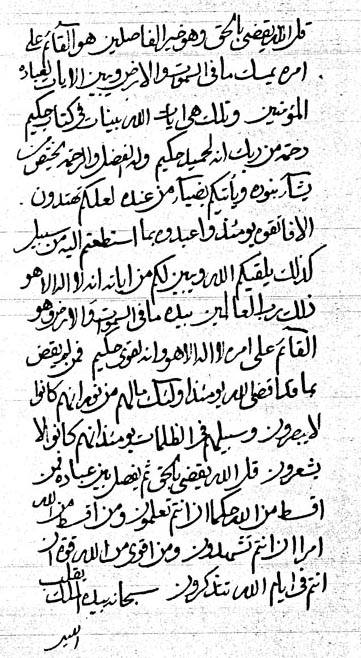 قل الله يقضى بالحق وهو خير الفاصلين هو القائم على
امره يمسك ما فى السموات والارض ويبين الايات لعباده
المؤمنين وتلك هى ايات الله بينات فى كتاب حكيم
رحمة من ربك انه لحميد حكيم وله الفضل والرحمة يختص من
يشاء بنوره وياتيكم بضياء من عنده لعلكم تهتدون
الا فاتقوه يومئذ واعبدوه بما استطعتم اليه من سبيل
كذلك يلقيكم الله ويبين لكم من اياته انه لا اله الا هو
ذلك رب العالمين بيده ما فى السموات والارض وهو
القائم على امره لا اله الا هو وانه لقوى حكيم فمن لم يقض
بما قد قضى الله يومئذ اولئك ما لهم من نور انهم كانوا
لا يبصرون وسبيلهم فى الظلمات يومئذ انهم كانوا لا
يشعرون قل الله يقضى بالحق ثم يفصل بين عباده فمن
اقسط من الله حكما ان انتم تعلمون ومن اقسط من الله
امرا ان انتم تشهدون ومن اقوى من الله قوة ان
انتم فى ايام الله تتذكرون سبحانه بيده الملك يقلب